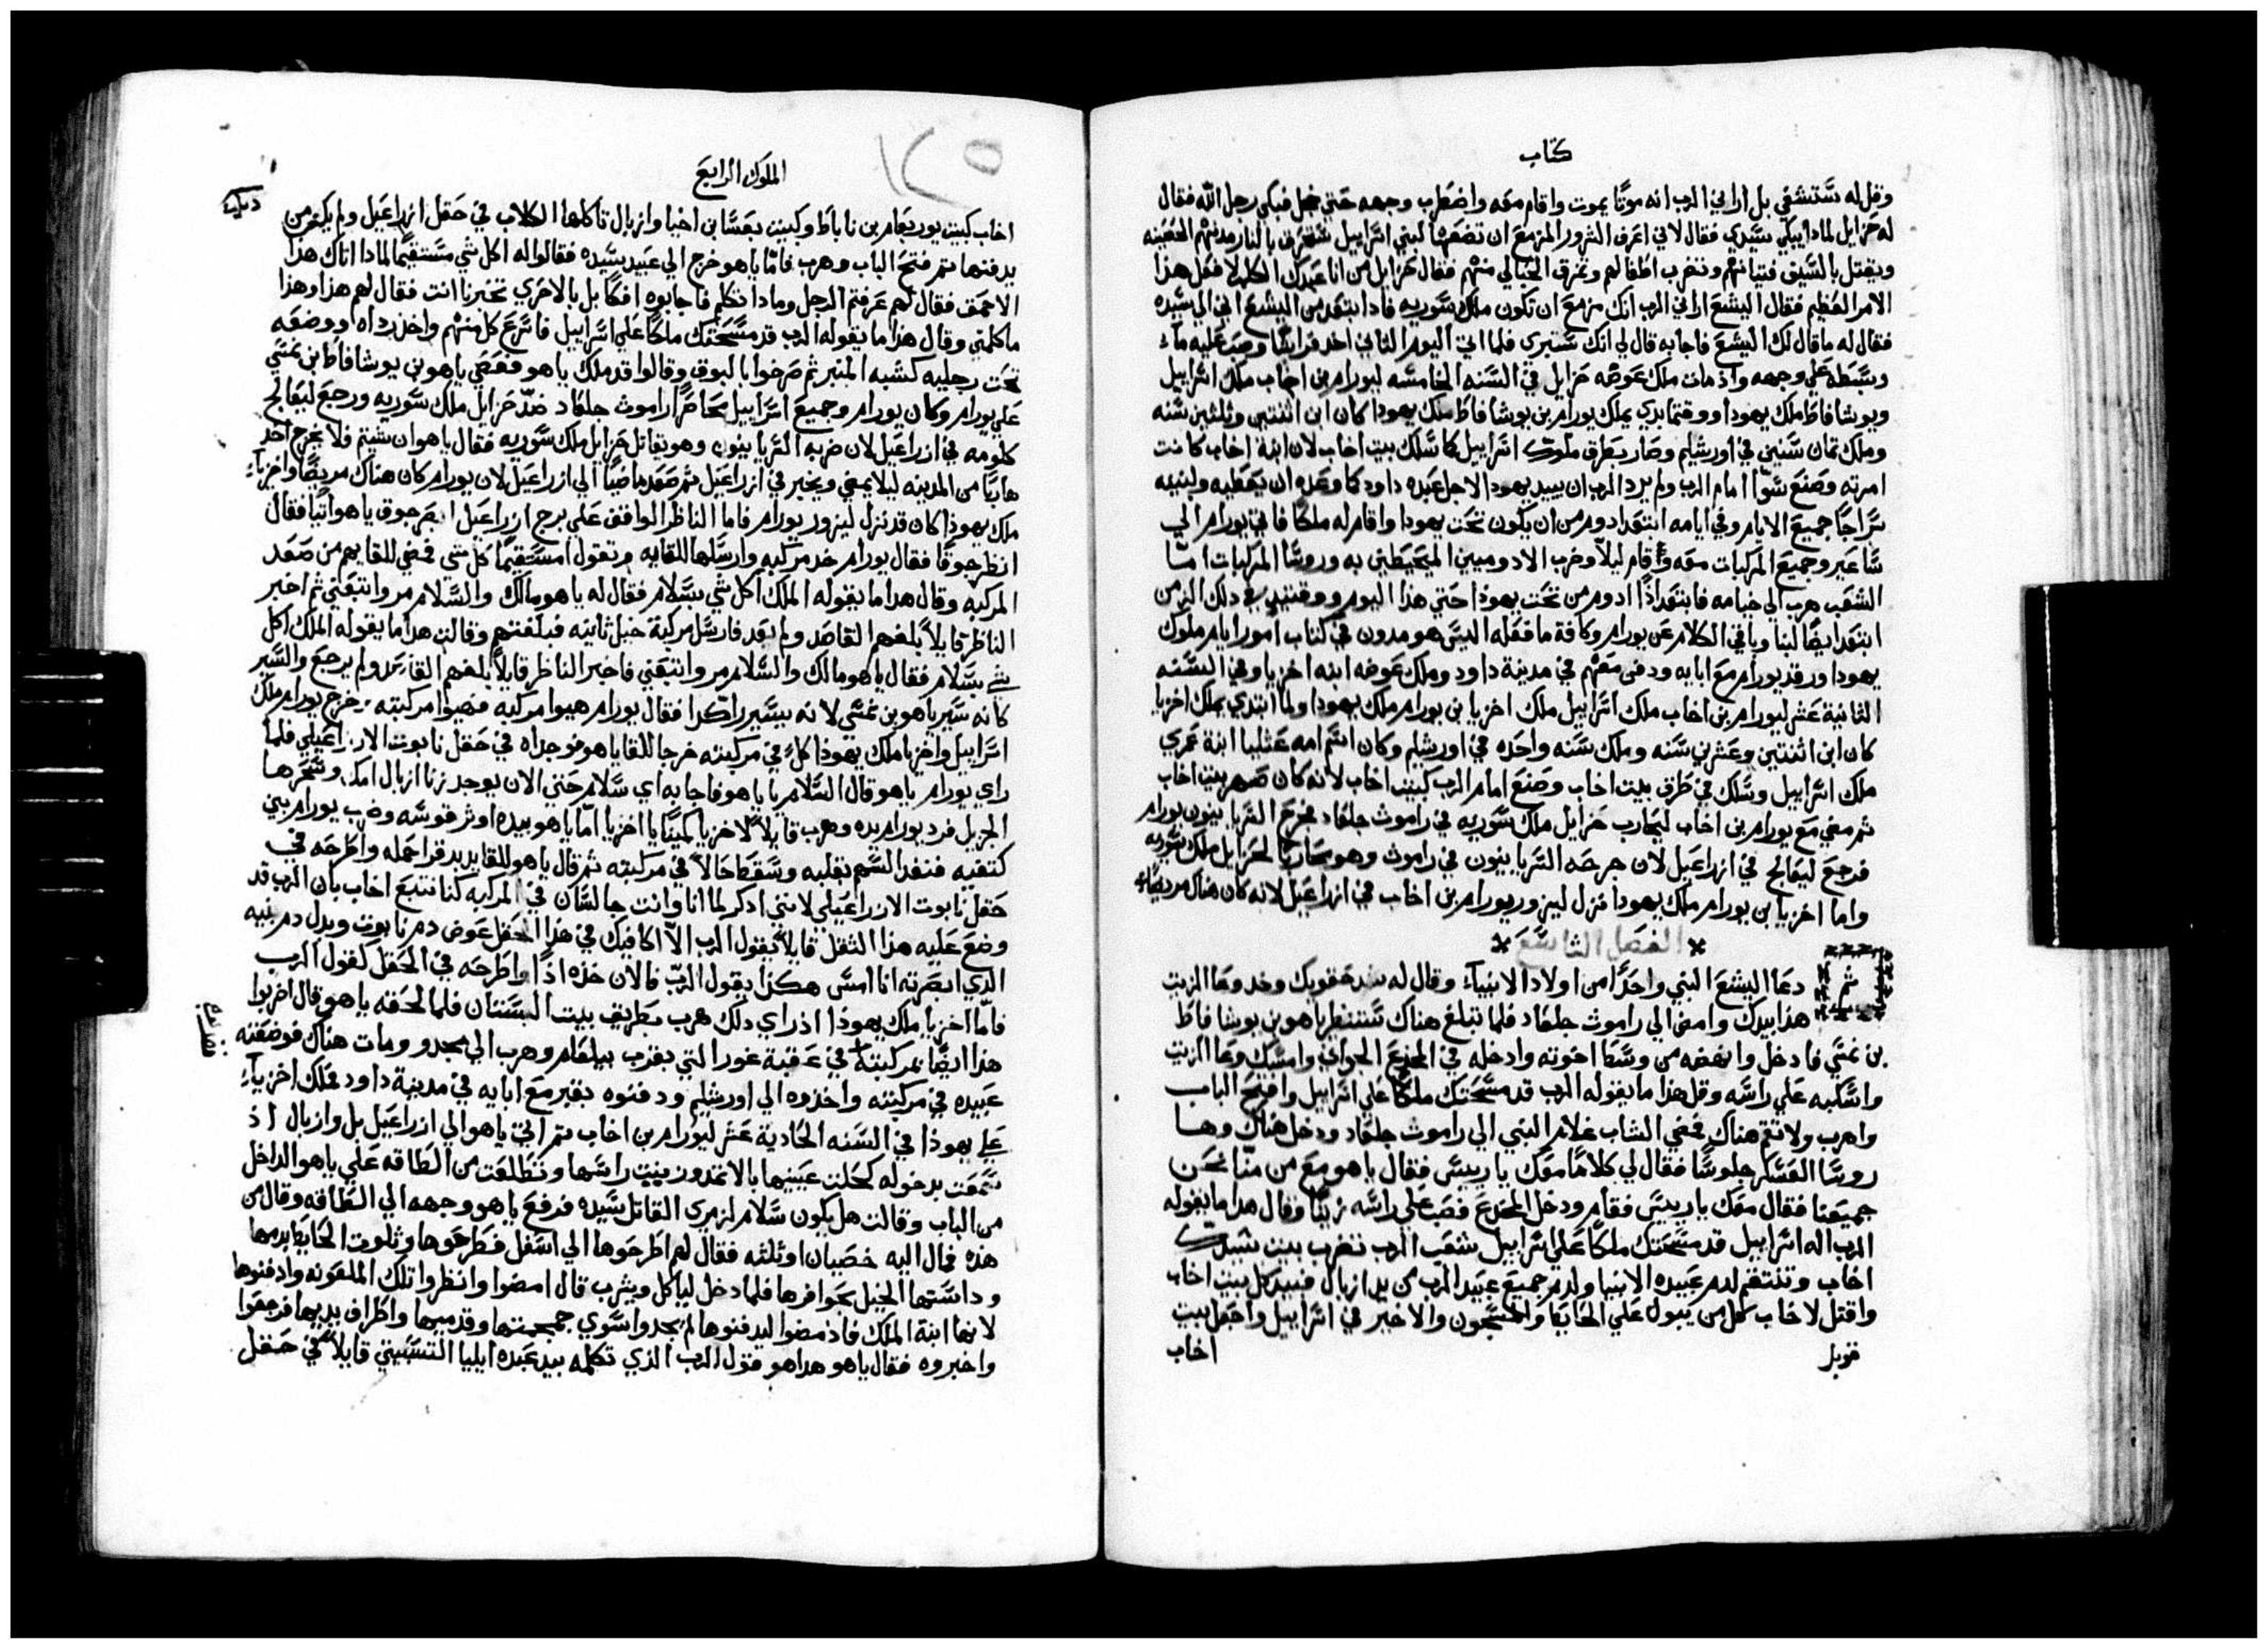 كتاب
وقل له ستستشفي بل اراني الرب انه موتًا يموت واقام معه واضطرب وجهه حتي خجل فبكي رجل الله فقال
له حزايل لماذا يبكي سيدي فقال لاني اعرف الشرور المزمع ان تصنعها لبني اسراييل ستحرق بالنار مدنهم الحصينه
ويقتل بالسيف فتيانهم وتضرب اطفالهم وتمزق الحبالي منهم فقال حزايل من انا عبدك الكلب لافعل هذا
الامر العظيم فقال اليشع اراني الرب انك مزمع ان تكون ملك سوريه فاذ ابتعد من اليشع اتي الي سيده
فقال له ما قال لك اليشع فاجابه قال لي انك ستبري فلما اتي اليوم الثاني اخذ فراشًا وصب عليه ماء
وبسطه علي وجهه واذ مات ملك عوضه حزايل في السنه الخامسه ليورام بن اخاب ملك اسراييل
ويوشافاط ملك يهودا ووقتما بدي يملك يورام بن يوشافاط ملك يهودا كان ابن اثنتين وثلثين سنه
وملك ثمان سنين في اورشليم وصار بطرق ملوك اسراييل كما سلك بيت اخاب لان ابنة اخاب كانت
امرته وصنع سوًا امام الرب ولم يرد الرب ان يبيد يهودا لاجل عبده داود كما وعده ان يعطيه ولبنيه
سراجًا جميع الايام وفي ايامه ابتعد ادوم من ان يكون تحت يهودا واقام له ملكًا فاتي يورام الي
ساعير وجميع المركبات معه وقام ليلًا وضرب الادوميين المحيطين به وروسا المركبات اما
الشعب هرب الي خيامه فابتعد اذًا ادوم من تحت يهودا حتي هذا اليوم ووقتيذٍ في ذلك الزمن
ابتعد ايضًا لبنا وباقي الكلام عن يورام وكافة ما فعله اليس هو مدون في كتاب امور ايام ملوك
يهودا ورقد يورام مع ابايه ودفن معهم في مدينة داود وملك عوضه ابنه اخزيا وفي السنه
الثانية عشر ليورام بن اخاب ملك اسراييل ملك اخزيا بن يورام ملك يهودا ولما ابتدي يملك اخزيا
كان ابن اثنتين وعشرين سنه وملك سنه واحده في اورشليم وكان اسم امه عثليا ابنة عمري
ملك اسراييل وسلك في طرق بيت اخاب وصنع امام الرب كبيت اخاب لانه كان صهر بيت اخاب
ثم مضي مع يورام بن اخاب ليحارب حزايل ملك سوريه في راموث جلعاد فجرح السريانيون يورام
فرجع ليعالج في ازراعيل لان جرحه السريانيون في راموث وهو محاربًا لحزايل ملك سوريه
واما اخزيا بن يورام ملك يهودا نزل ليزور يورام بن اخاب في ازراعيل لانه كان هناك مريضًا
الفصل التاسع
ثم
دعا اليشع النبي واحدًا من اولاد الانبياء وقال له شد حقويك وخد وعا الزيت
هذا بيدك وامضي الي راموث جلعاد فلما تبلغ هناك ستنظر ياهو بن يوشافاط
بن نمسي فادخل وانهضه من وسط اخوته وادخله في المخدع الجواني وامسك وعا الزيت
واسكبه علي راسه وقل هذا ما يقوله الرب قد مسحتك ملكًا علي اسراييل وافتح الباب
واهرب ولا تقم هناك فمضي الشاب غلام النبي الي راموث جلعاد ودخل هناك وها
روسا العسكر جلوسًا فقال لي كلامًا معك يا رييس فقال ياهو مع من منا نحن
جميعنا فقال معك يا رييس فقام ودخل المخدع فصب علي راسه زيتًا وقال هدا ما يقوله
الرب اله اسراييل قد مسحتك ملكًا علي اسراييل شعب الرب تضرب بيت سيدك
اخاب وتنتقم لدم عبيده الانبيا ولدم جميع عبيد الرب من يد ازبال فنبيد كل بيت اخاب
واقتل لاخاب كل من يبول علي الحايط والمسجون والاخير في اسراييل واجعل بيت
اخاب
قوبل
الملوك الرابع
١٢٥
اخاب كبيت يوربعام بن ناباط وكبيت بعسا بن اخيا وازبال تاكلها الكلاب في حقل ازراعيل ولم يكن من
يدفنها ثم فتح الباب وهرب فاما ياهو خرج الي عبيد سيده فقالوا له اكل شي مستقيمًا لماذا اتاك هذا
الاحمق فقال لهم عرفتم الرجل وماذا تكلم فاجابوه افكًا بل بالاحري تخبرنا انت فقال لهم هذا وهذا
ما كلمني وقال هذا ما يقوله الرب قد مسحتك ملكًا علي اسراييل فاسرع كل منهم واخذ رداه ووضعه
تحت رجليه كشبه المنبر ثم صرخوا بالبوق وقالوا قد ملك ياهو فعصي ياهو بن يوشافاط بن نمسي
علي يورام وكان يورام وجميع اسراييل محاصرًا راموث جلعاد ضد حزايل ملك سوريه ورجع ليعالج
كلومه في ازراعيل لان ضربه السريانيون وهو يقاتل حزايل ملك سوريه فقال ياهو ان شيتم فلا يخرج احد
هاربًا من المدينه ليلا يمضي ويخبر في ازراعيل ثم صعد ماضيًا الي ازراعيل لان يورام كان هناك مريضًا واخزيا
ملك يهودا كان قد نزل ليزور يورام فاما الناظر الواقف علي برج ازراعيل ابصر جوق ياهو اتيًا فقال
انظر جوقًا فقال يورام خد مركبه وارسلها للقايه وتقول امستقيمًا كل شي فمضي للقايهم من صعد
المركبه وقال هدا ما يقوله الملك اكل شي بسلام فقال له ياهو مالك والسلام مر واتبعني ثم اخبر
الناظر قايلًا بلغهم القاصد ولم يعد فارسل مركبة خيل ثانيه فبلغتهم وقالت هدا ما يقوله الملك اكل
شي بسلام فقال ياهو مالك والسلام مر واتبعني فاخبر الناظر قايلًا بلغهم القاصد ولم يرجع والسير
كانه سير ياهو بن نمسي لانه يسير راكدا فقال يورام هيوا مركبه فهيوا مركبته وخرج يورام ملك
اسراييل واخزيا ملك يهودا كلٌ في مركبته خرجا للقا ياهو فوجداه في حقل نابوت الازراعيلي فلما
راي يورام ياهو قال السلام يا ياهو فاجابه اي سلام حتي الان يوجد زنا ازبال امك وسحرها
الجزيل فرد يورام يده وهرب قايلًا لاخزيا كمينًا يا اخزيا اما ياهو بيده اوتر قوسه وضرب يورام بين
كتفيه فنفد السهم بقلبه وسقط حالًا في مركبته ثم قال ياهو للقايد بدقر احمله واطرحه في
حقل نابوت الازراعيلي لانني ادكر لما انا وانت جالسان في المركبه كنا نتبع اخاب بان الرب قد
وضع عليه هذا الثقل قايلًا يقول الرب الا اكافيك في هذا الحقل عوض دم نابوت وبدل دم بنيه
الدي ابصرته انا امس هكذا يقول الرب فالان خذه اذًا واطرحه في الحقل كقول الرب
فاما اخزيا ملك يهودا اذ راي ذلك هرب بطريق بيت البستان فلما لحقه ياهو قال اضربوا
هذا ايضًا بمركبته في عقبة غور التي بقرب يبلعام وهرب الي مجدو ومات هناك فوضعته
عبيده في مركبته واخذوه الي اورشليم ودفنوه بقبر مع ابايه في مدينة داود فملك اخزيا
علي يهودا في السنه الحادية عشر ليورام بن اخاب ثم اتي ياهو الي ازراعيل بل وازبال اذ
سمعت بدخوله كحلت عينيها بالاثمد وزينت راسها وتطلعت من الطاقه علي ياهو الداخل
من الباب وقالت هل يكون سلام لزمري القاتل سيده فرفع ياهو وجهه الي الطاقه وقال من
هذه فمال اليه خصيان او ثلثه فقال لهم اطرحوها الي اسفل فطرحوها وتلوت الحايط بدمها
وداستها الخيل بحوافرها فلما دخل لياكل ويشرب قال امضوا وانظروا تلك الملعونه وادفنوها
لانها ابنة الملك فاذ مضوا ليدفنوها لم يجدوا سوي جمجمتها وقدميها واطراف يديها فرجعوا
واخبروه فقال ياهو هدا هو قول الرب الذي تكلمه بيد عبده ايليا التسبيتي قايلًا في حقل